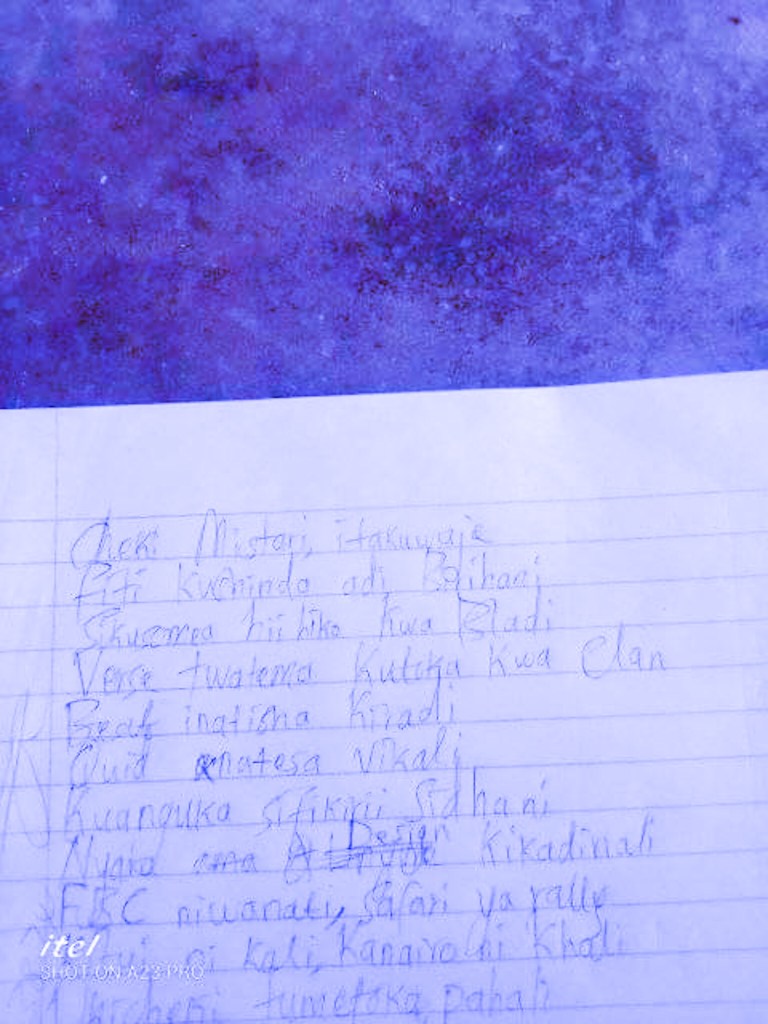 Cheki Mistari, itakuwaje
Fiti kuchinda adi
Skuizmea hii hiko kwa Bladi
Verse twatema kutoka kwa Clan
Beat inatisha kiradi
Quid anatesa vikali
Kuanguka sifikirii Sidhani
ama Design Kikadinali
niwanati, safari ya rally
ni kali, Kanairo ni Khali
tumetoka pahali
itel
SHOT ON A23 PRO